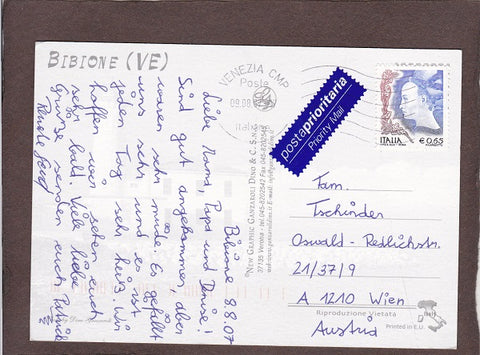 BIBIONE (VE)
Bibione 8.8.07
Liebe Mama, Papa und Denise!
Sind gut angekommen, aber
waren sehr müde. Es gefällt
uns sehr und es ist
jeden Tag sehr heiß. Wir
hoffen wir sehen euch
sehr bald. Viele liebe
Grüße senden euch
VENEZIA CMP
Poste
09.08
Italiane
postaprioritaria
Priority Mail
ITALIA
€ 0,65
NEW GRAPHIC GANTAROLI DINO & C. S.N.C.
Fam.
Tschinder
Oswald-Redlichstr.
21/37/9
A 1210 Wien
Austria
Riproduzione Vietata
Printed in E.U.